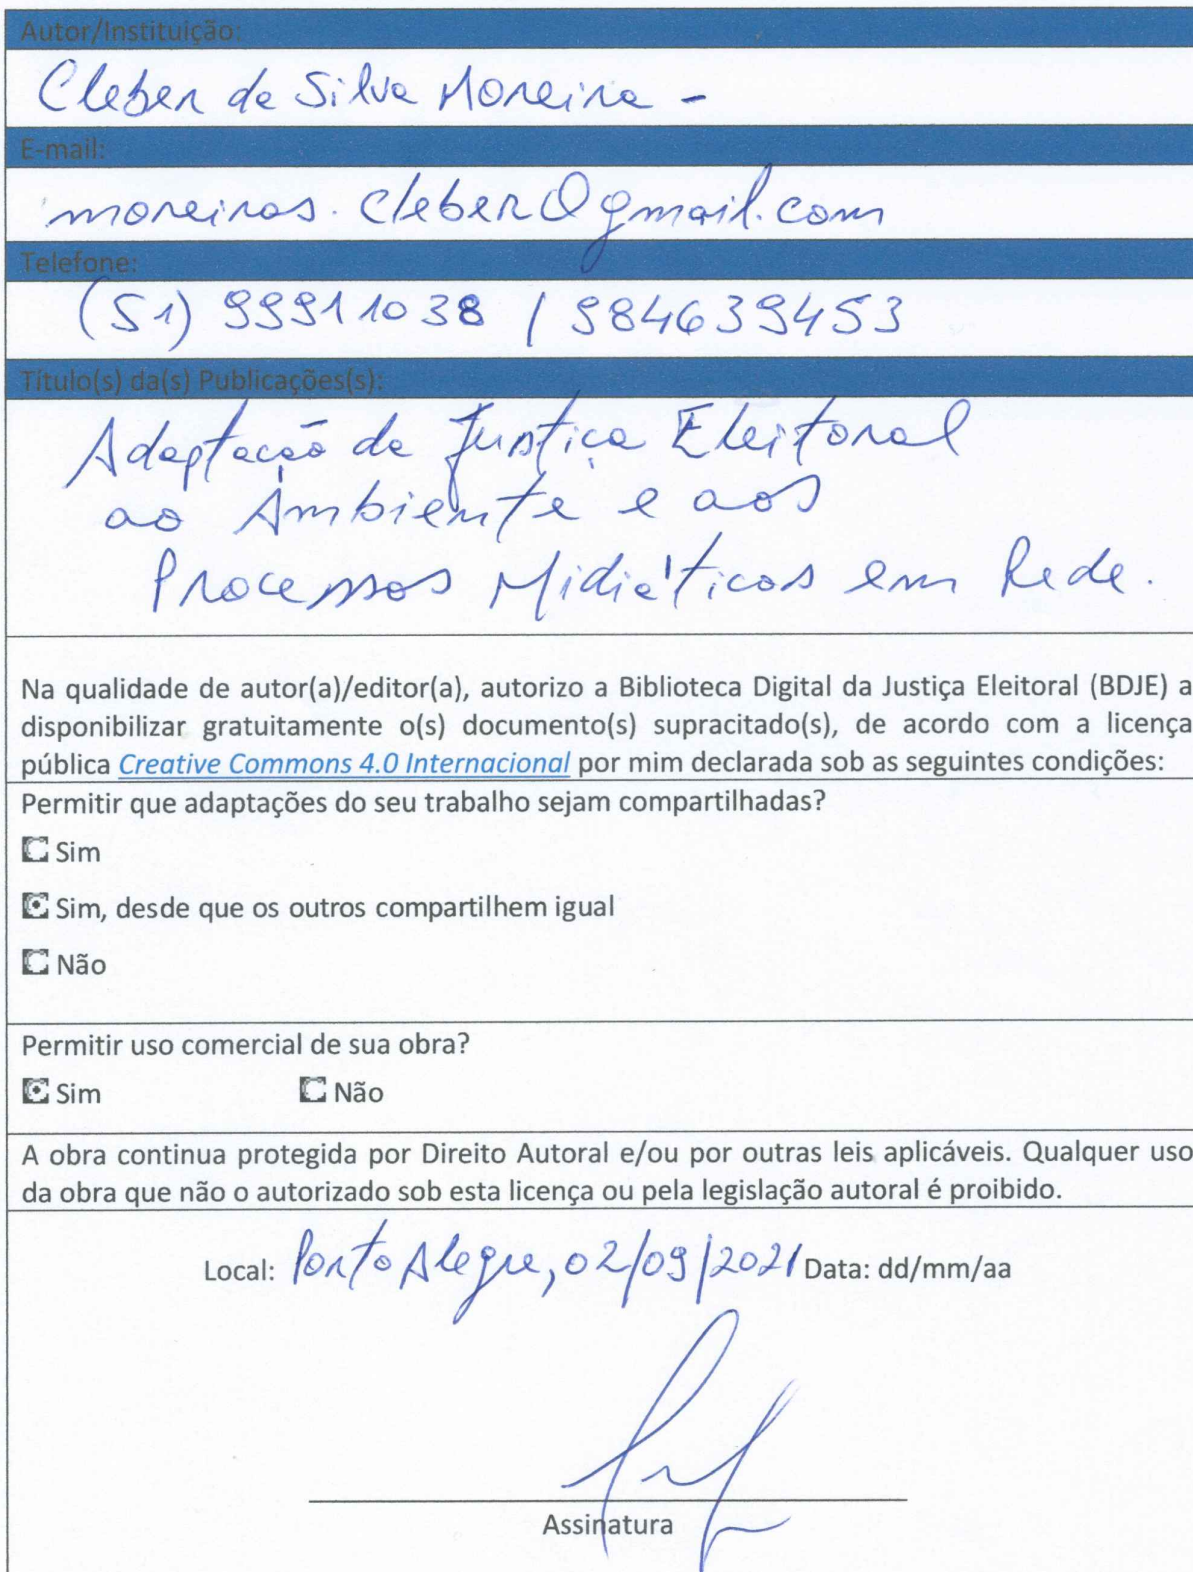 Autor/Instituição:
Cleber da Silva Moreira -
E-mail:
moreiras.cleber@gmail.com
Telefone:
(51) 99911038 / 984639453
Título(s) da(s) Publicações(s):
Adaptação da Justiça Eleitoral
ao Ambiente e aos
Processos Midiáticos em Rede.
Na qualidade de autor(a)/editor(a), autorizo a Biblioteca Digital da Justiça Eleitoral (BDJE) a
disponibilizar gratuitamente o(s) documento(s) supracitado(s), de acordo com a licença
pública Creative Commons 4.0 Internacional por mim declarada sob as seguintes condições:
Permitir que adaptações do seu trabalho sejam compartilhadas?
Sim
Sim, desde que os outros compartilhem igual
Não
Permitir uso comercial de sua obra?
Sim Não
A obra continua protegida por Direito Autoral e/ou por outras leis aplicáveis. Qualquer uso
da obra que não o autorizado sob esta licença ou pela legislação autoral é proibido.
Local: Porto Alegre, 02/09/2021 Data: dd/mm/aa
Assinatura